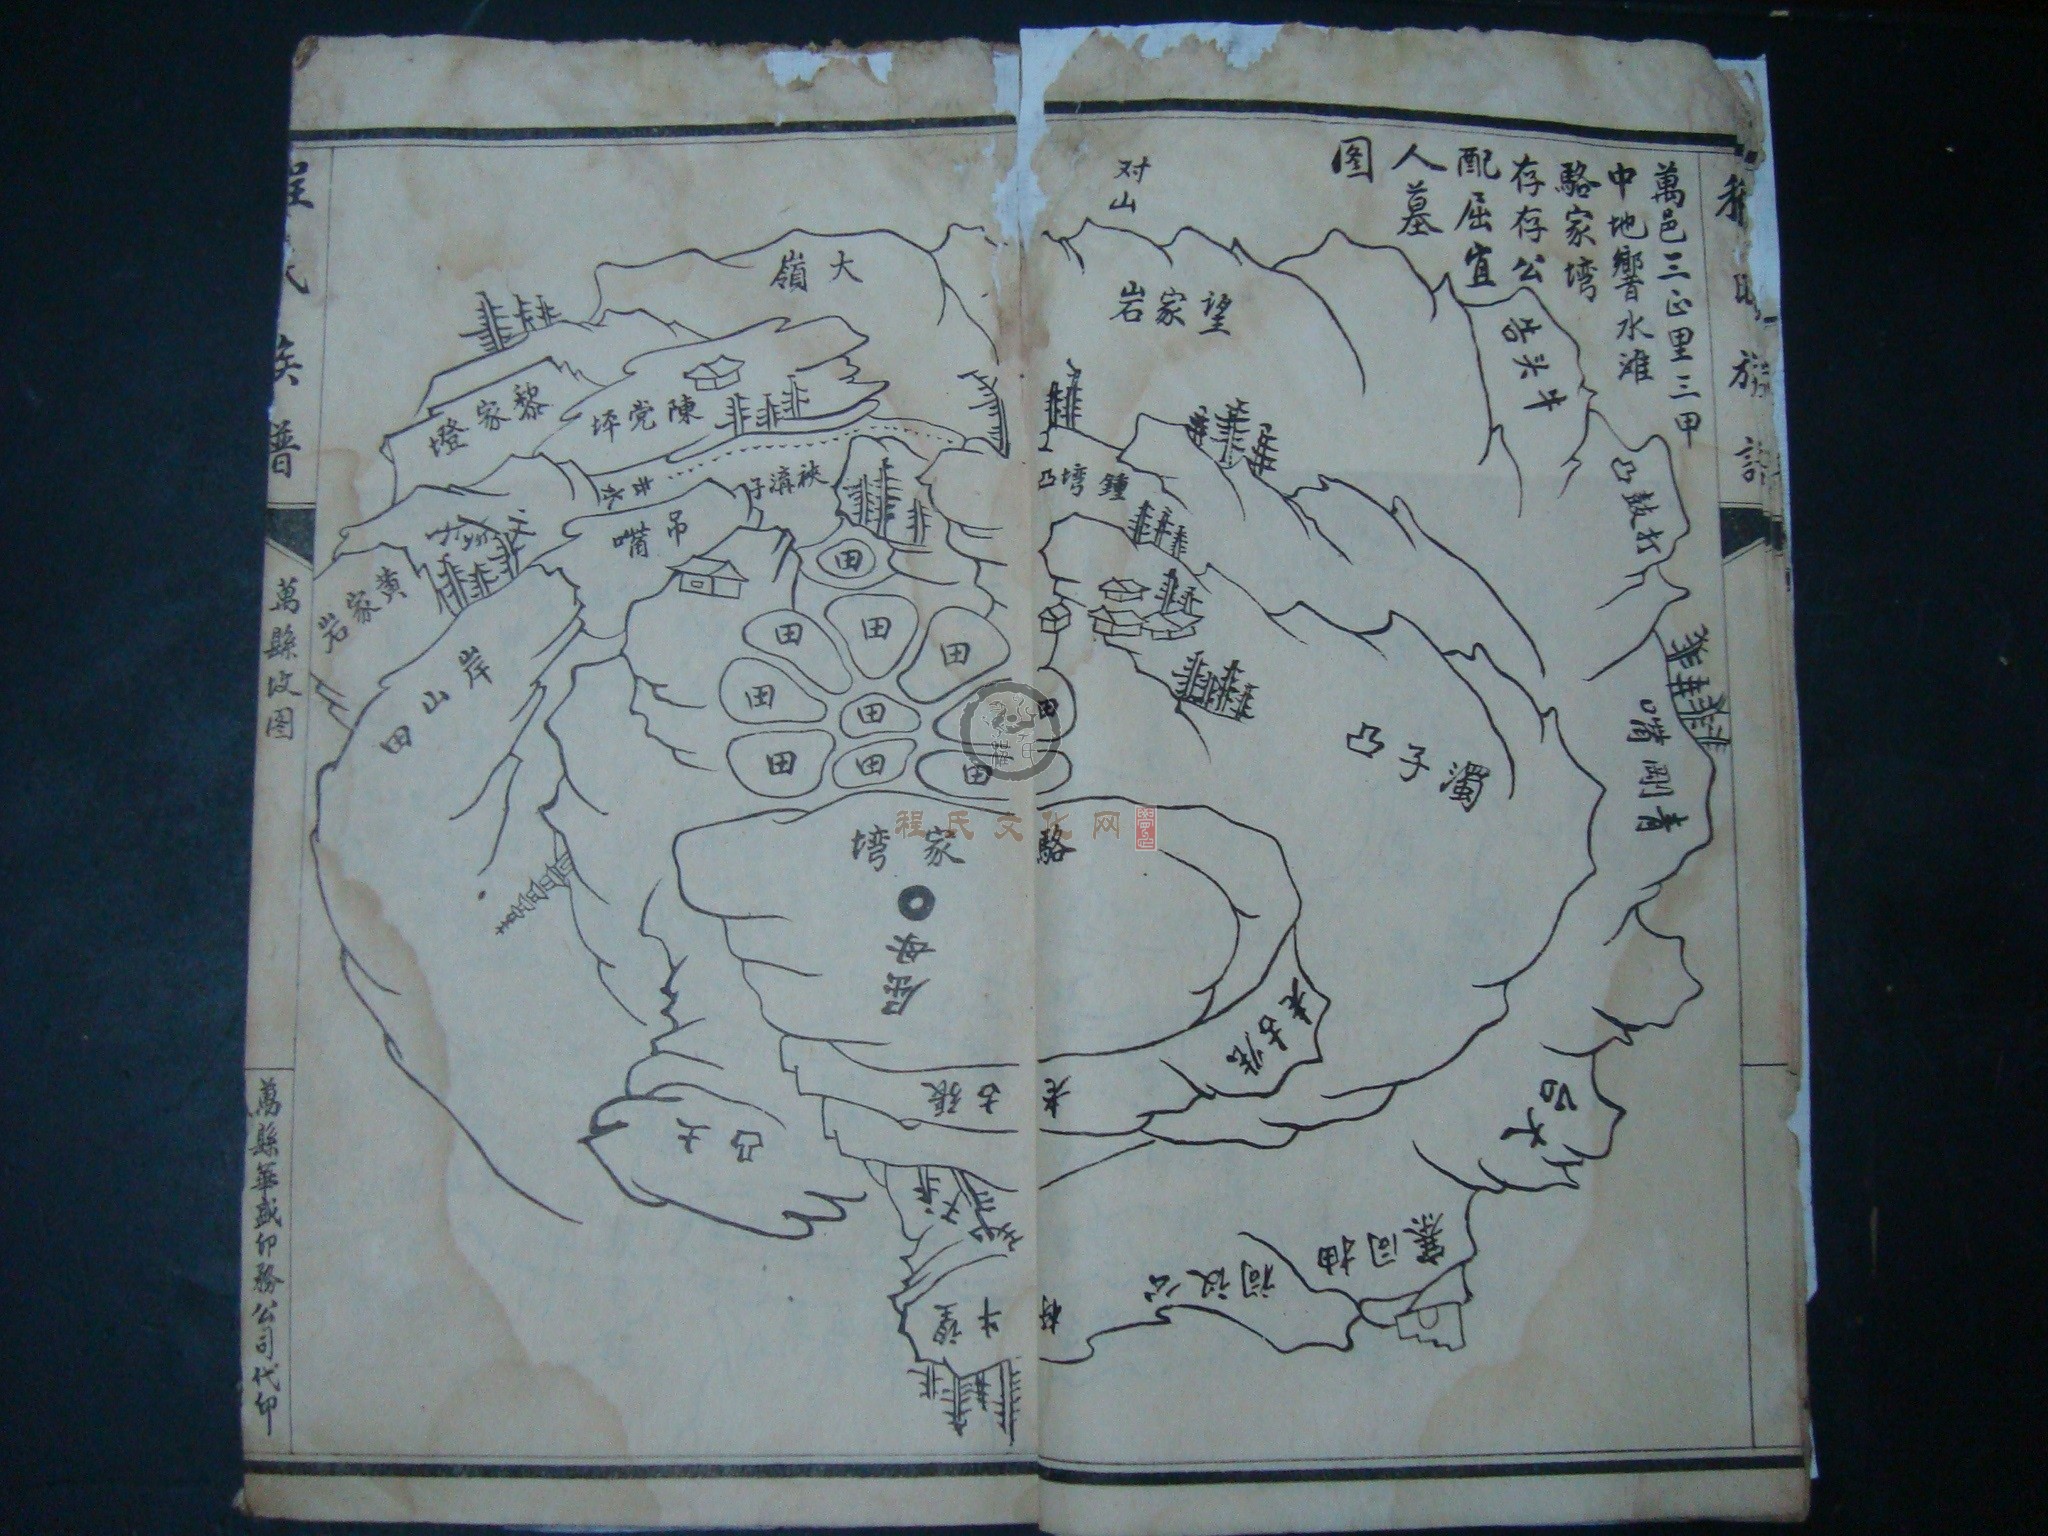 萬邑三正里三甲
中地響水滩
駱家塆
存存公
配屈宜
人墓
图
对山
望家岩
大嶺
牛头岩
凸鼓打
鍾塆凸
黎家嶝
陳党坪
吊嘴
黄家岩
田山岸
田
田
田
田
田
田
田
田
田
田
田
濁子凸
青剛嘴
駱家塆
屈母
老古張
老古張
大凸
望牛
程氏文化网
程氏族譜
萬縣坟图
萬縣華盛印務公司代印
族